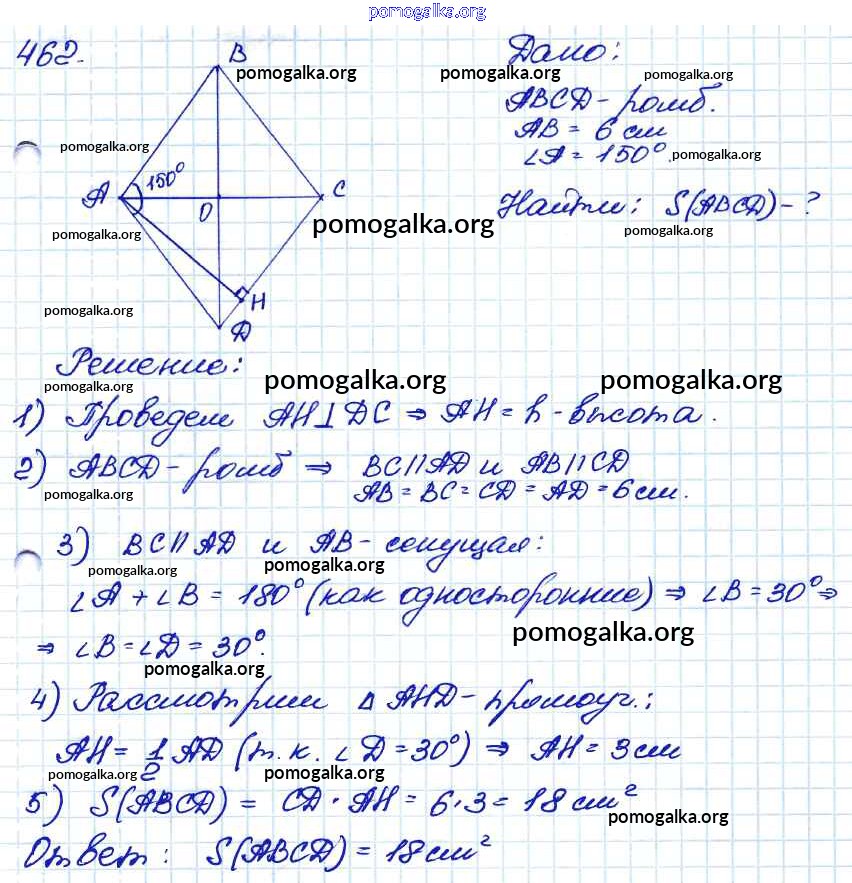 pomogalka.org
462.
B
Дано:
pomogalka.org pomogalka.org pomogalka.org
ABCD - ромб.
AB = 6 см
pomogalka.org
∠A = 150°. pomogalka.org
A 150° O C
Найти: S(ABCD) - ?
pomogalka.org pomogalka.org pomogalka.org
H
pomogalka.org
D
Решение:
pomogalka.org pomogalka.org pomogalka.org
1) Проведем AH⊥DC ⇒ AH = h - высота.
2) ABCD - ромб ⇒ BC||AD и AB||CD
pomogalka.org AB = BC = CD = AD = 6 см.
3) BC||AD и AB - секущая:
pomogalka.org pomogalka.org
∠A + ∠B = 180° (как односторонние) ⇒ ∠B = 30° ⇒
⇒ ∠B = ∠D = 30°.
pomogalka.org
pomogalka.org
4) Рассмотрим △ AHD - прямоуг.:
AH = 1/2 AD (т.к. ∠D = 30°) ⇒ AH = 3 см
pomogalka.org pomogalka.org
5) S(ABCD) = CD · AH = 6 · 3 = 18 см²
pomogalka.org
Ответ: S(ABCD) = 18 см²